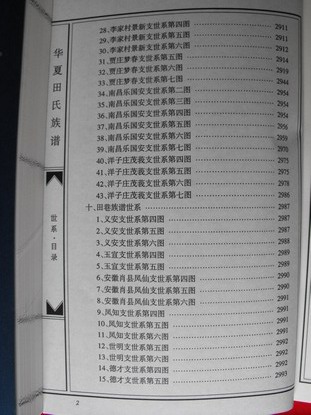 华夏田氏族谱
世系·目录
28、李家村景新支世系第四图 2911
29、李家村景新支世系第五图 2911
30、李家村景新支世系第六图 2911
31、贾庄梦春支世系第五图
32、贾庄梦春支世系第六图
33、贾庄梦春支世系第七图
34、南昌乐国安支世系第二图 2954
35、南昌乐国安支世系第三图 2954
36、南昌乐国安支世系第四图 2954
37、南昌乐国安支世系第五图
38、南昌乐国安支世系第六图
39、南昌乐国安支世系第七图
40、洋子庄茂莪支世系第四图 2975
41、洋子庄茂莪支世系第五图 2975
42、洋子庄茂莪支世系第六图
43、洋子庄茂莪支世系第七图 2986
十、田巷族谱世系 2987
1、义安支世系第四图 2987
2、义安支世系第五图 2987
3、义安支世系第六图 2987
4、玉宣支世系第四图
5、玉宣支世系第五图
6、安徽肖县凤仙支世系第四图
7、安徽肖县凤仙支世系第五图
8、安徽肖县凤仙支世系第六图
9、凤知支世系第四图
10、凤知支世系第五图
11、凤知支世系第六图
12、世明支世系第五图 2992
13、世明支世系第六图 2992
14、德才支世系第四图 2992
15、德才支世系第五图 2993
2